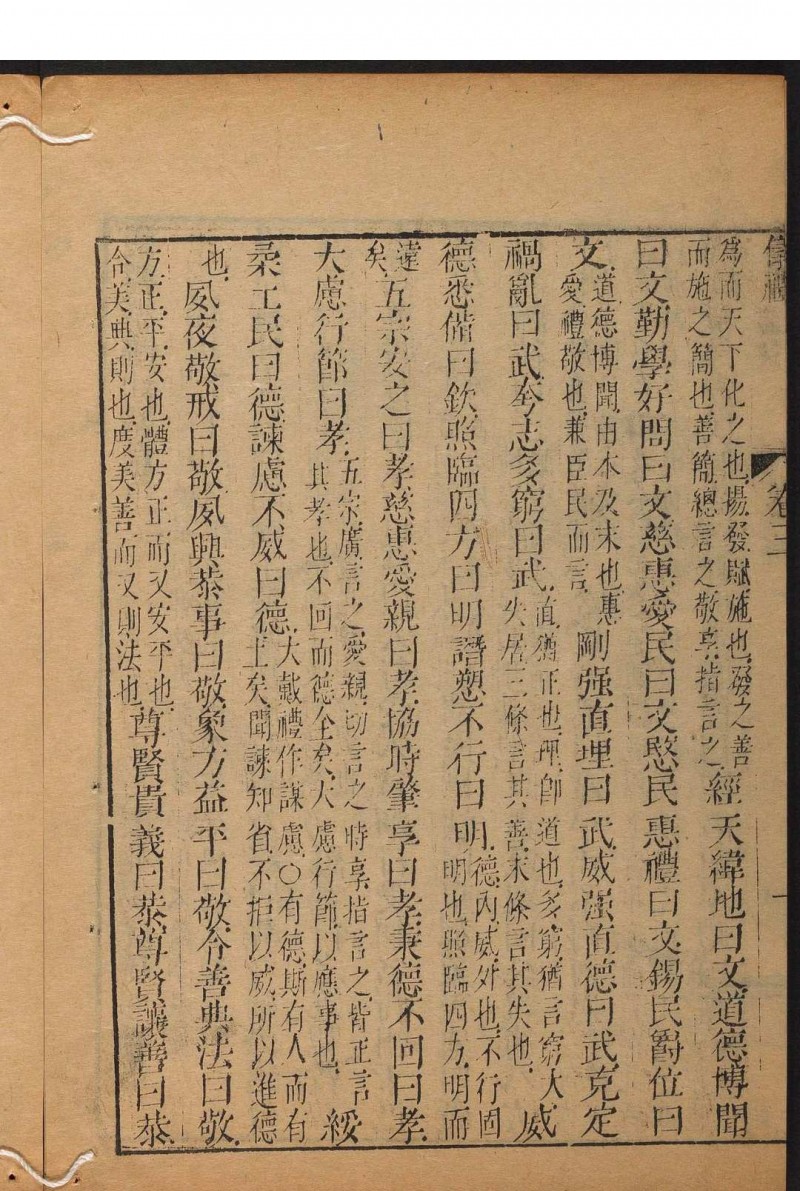 卷三
一
為而天下化之也揚發賦施也發之善
而施之簡也善簡總言之敬享指言之
經天緯地曰文道德博聞
曰文勤學好問曰文慈惠愛民曰文愍民惠禮曰文錫民爵位曰
文
道德博聞由本及末也惠
愛禮敬也兼臣民而言
剛强直理曰武威强直德曰武克定
禍亂曰武夸志多窮曰武
直猶正也理即道也多窮猶言窮大
失居三條言其善末條言其失也
威
德悉備曰欽照臨四方曰明譖愬不行曰明
德內威外也不行固
明也照臨四方明而
遠
矣
五宗安之曰孝慈惠愛親曰孝協時肇享曰孝秉德不回曰孝
大慮行節曰孝
五宗廣言之愛親切言之時享指言之皆正言
其孝也不回而德全矣大慮行節以應事也
綏
柔工民曰德諫慮不威曰德
大戴禮作謀慮○有德斯有人而有
土矣聞諫知省不拒以威所以進德
也
夙夜敬戒曰敬夙興恭事曰敬象方益平曰敬令善典法曰敬
方正平安也體方正而又安平也
令美典則也度美善而又則法也
尊賢貴義曰恭尊賢讓善曰恭